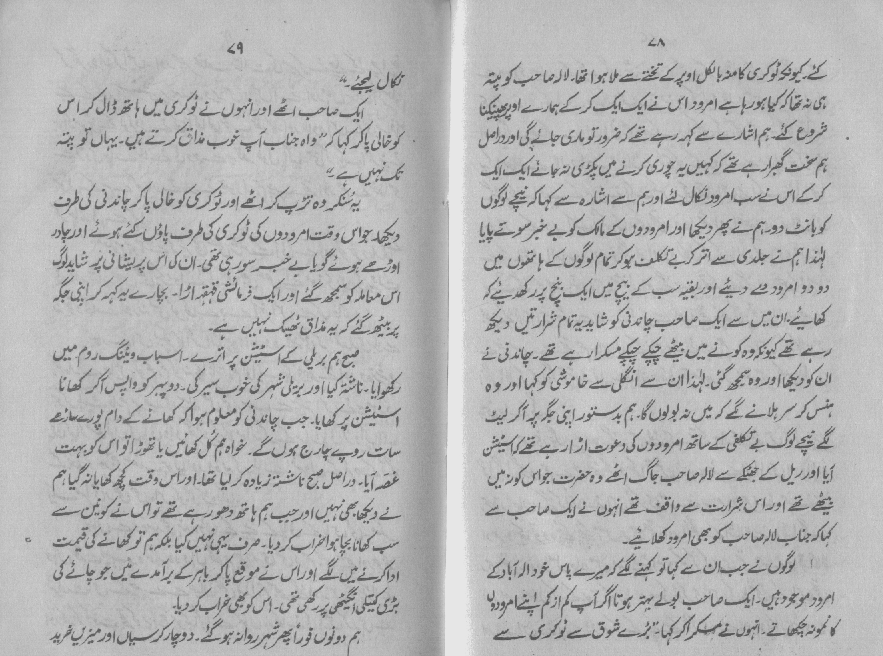 ۷۸
گئے۔ کیونکہ ٹوکری کا منہ بالکل اوپر کے تختے سے ملا ہوا تھا۔ لالہ صاحب کو پتہ
ہی نہ تھا کہ کیا ہو رہا ہے امرود اس نے ایک ایک کر کے ہمارے اوپر پھینکنا
شروع کئے۔ ہم اشارے سے کہہ رہے تھے کہ ضرور تو ماری جائے گی اور دراصل
ہم سخت گھبرا رہے تھے کہ کہیں یہ چوری کرنے میں پکڑی نہ جائے ایک ایک
کر کے اس نے سب امرود نکال لئے اور ہم سے اشارہ سے کہا کہ نیچے لوگوں
کو بانٹ دو۔ ہم نے پھر دیکھا اور امرودوں کے مالک کو بے خبر سوتے پایا
لہٰذا ہم نے جلدی سے اتر کر بے تکلف ہو کر تمام لوگوں کے ہاتھوں میں
دو دو امرود دے دیئے اور بقیہ سب کے بیچ میں ایک بنچ پر رکھ دیئے کہ
کھایئے، ان میں سے ایک صاحب چاندنی کو شاید یہ تمام شرارتیں دیکھ
رہے تھے کیونکہ وہ کونے میں بیٹھے چپکے چپکے مسکرا رہے تھے۔ چاندنی نے
ان کو دیکھا اور وہ سمجھ گئی۔ لہٰذا ان سے انگلی سے خاموشی کو کہا اور وہ
ہنس کر سر ہلانے لگے کہ میں نہ بولوں گا۔ ہم بدستور اپنی جگہ پر آ کر لیٹ
گئے نیچے لوگ بے تکلفی کے ساتھ امرودوں کی دعوت اڑا رہے تھے کہ اسٹیشن
آیا اور ریل کے جھٹکے سے لالہ صاحب جاگ اٹھے وہ حضرت جو اس کونہ میں
بیٹھے تھے اور اس شرارت سے واقف تھے انہوں نے ایک صاحب سے
کہا کہ جناب لالہ صاحب کو بھی امرود کھلایئے۔
لوگوں نے جب ان سے کہا تو کہنے لگے کہ میرے پاس خود الہ آباد کے
امرود موجود ہیں۔ ایک صاحب بولے بہتر ہوتا اگر آپ کم از کم اپنے امرودوں
کا نمونہ چکھاتے۔ انہوں نے مسکرا کر کہا۔ "بڑے شوق سے ٹوکری سے
۷۹
نکال لیجئے۔"
ایک صاحب اٹھے اور انہوں نے ٹوکری میں ہاتھ ڈال کر اس
کو خالی پا کر کہا کہ "واہ جناب آپ خوب مذاق کرتے ہیں۔ یہاں تو پتہ
تک نہیں ہے۔"
یہ سنکر وہ تڑپ کر اٹھے اور ٹوکری کو خالی پا کر چاندنی کی طرف
دیکھا۔ جو اس وقت امرودوں کی ٹوکری کی طرف پاؤں کئے ہوئے اور چادر
اوڑھے ہوئے گویا بے خبر سو رہی تھی۔ ان کی اس پریشانی پر شاید لوگ
اس معاملہ کو سمجھ گئے اور ایک فرمائشی قہقہہ اڑا۔ بچارے یہ کہہ کر اپنی جگہ
پر بیٹھ گئے کہ یہ مذاق ٹھیک نہیں ہے۔
صبح ہم بریلی کے اسٹیشن پر اترے۔ اسباب ویٹنگ روم میں
رکھوایا۔ ناشتہ کیا اور بریلی شہر کی خوب سیر کی۔ دوپہر کو واپس آ کر کھانا
اسٹیشن پر کھایا۔ جب چاندنی کو معلوم ہوا کہ کھانے کے دام پورے ساڑھے
سات روپے چارج ہوں گے۔ خواہ ہم کل کھائیں یا تھوڑا تو اس کو بہت
غصہ آیا۔ دراصل صبح ناشتہ زیادہ کر لیا تھا۔ اور اس وقت کچھ کھایا نہ گیا ہم
نے دیکھا بھی نہیں اور جب ہم ہاتھ دھو رہے تھے تو اس نے کونین سے
سب کھانا بچا ہوا خراب کر دیا۔ صرف یہی نہیں کیا بلکہ ہم تو کھانے کی قیمت
ادا کرنے میں لگے اور اس نے موقع پا کر باہر کے برآمدے میں جو چائے کی
بڑی کیتلی انگیٹھی پر رکھی تھی۔ اس کو بھی خراب کر دیا۔
ہم دونوں فوراً پھر شہر روانہ ہو گئے۔ دو چار کرسیاں اور میزیں خرید